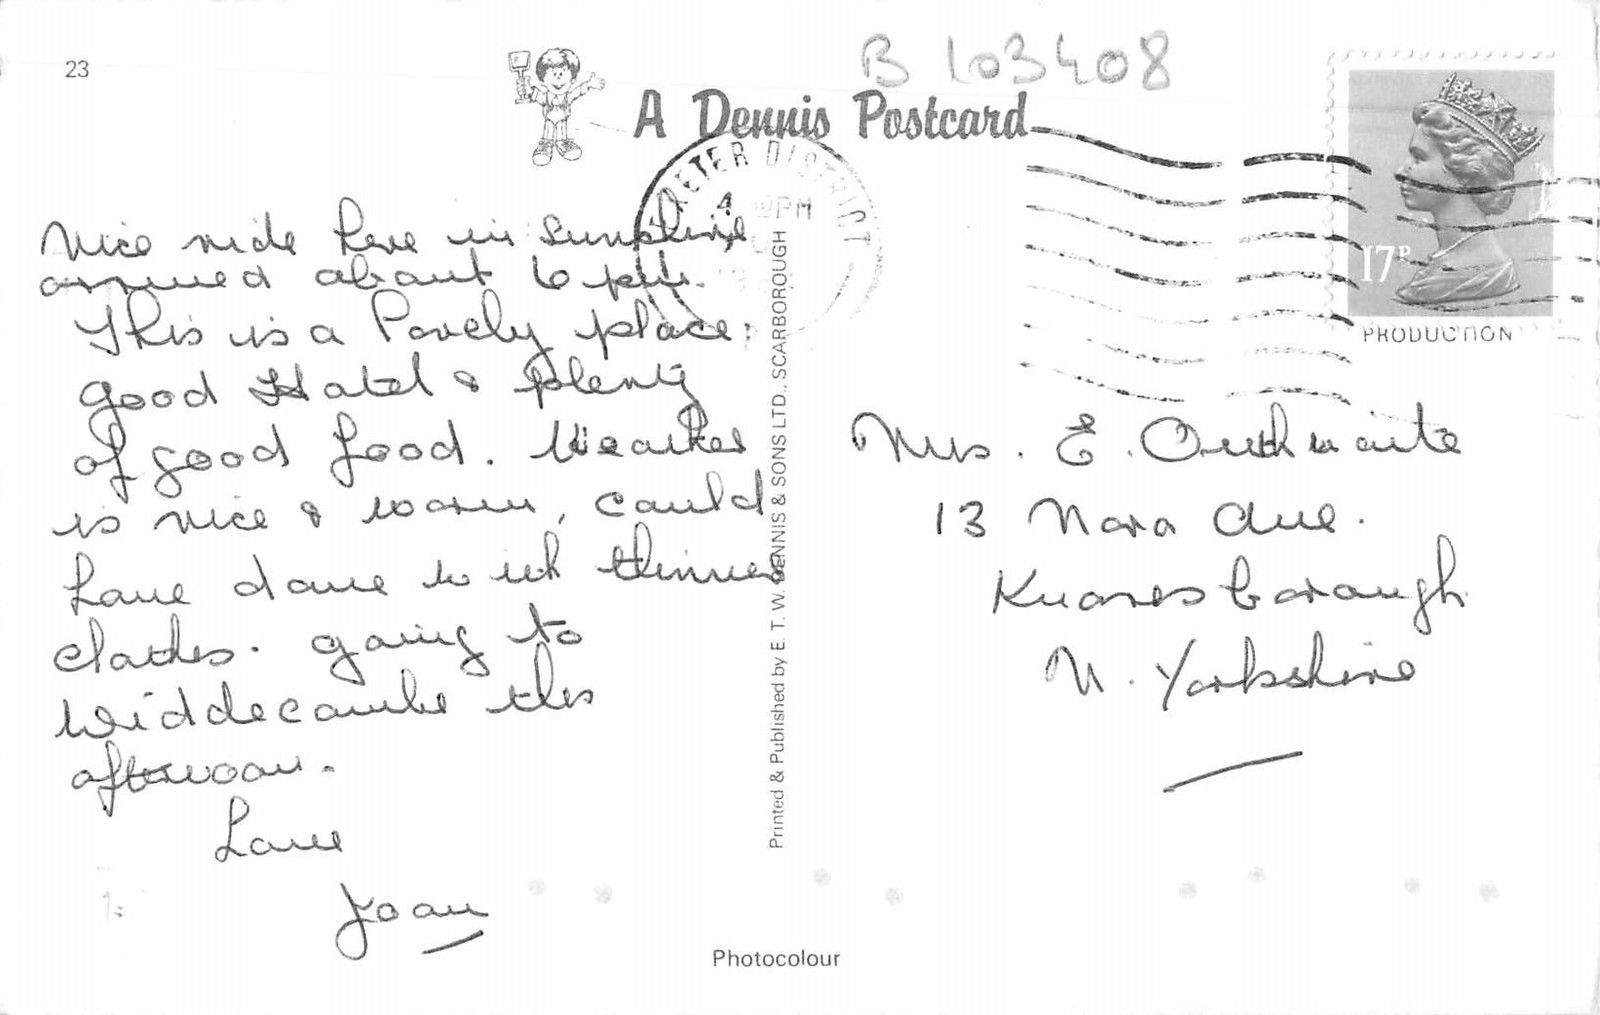 23
B 103408
A Dennis Postcard
EXETER DISTRICT
4 PM
17P
PRODUCTION
Nice ride here in sunshine
arrived about 6 pm.
This is a lovely place.
good Hotel & plenty
of good food. Weather
is nice & warm, could
have done with thinner
clothes. going to
Widdecombe this
afternoon.
Love
Joan
Printed & Published by E. T. W. DENNIS & SONS LTD., SCARBOROUGH
Mrs. E. Outhwaite
13 Nora Ave.
Knaresborough
N. Yorkshire
Photocolour